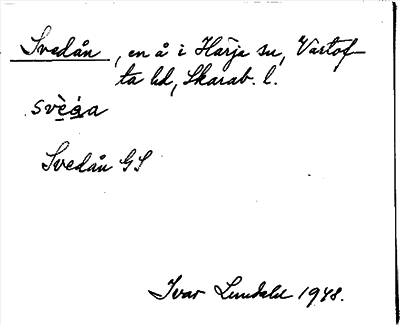 Svedån, en å i Härja sn, Vartof-
ta hd, Skarab. l.
svèǝ́a
Svedån GS
Ivar Lundahl 1948.